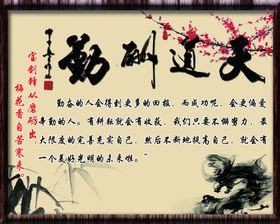 天道酬勤
宝剑锋从磨砺出，
梅花香自苦寒来。
勤奋的人会得到更多的回报，而成功呢，会更偏爱
辛勤的人。有耕耘就会有收获，我们只要不懈努力，最
大限度的完善充实自己，然后不断地提高自己，就会有
一个美好光明的未来啦。”